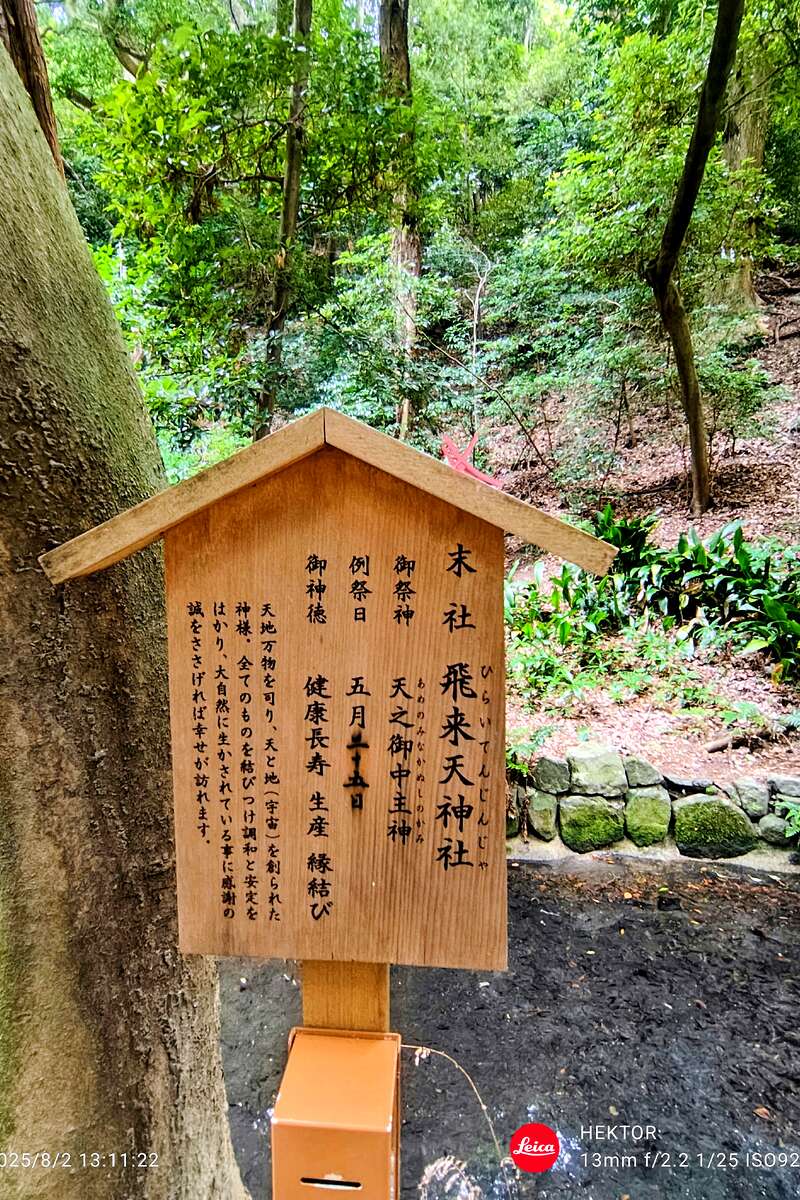 末社 飛来天神社
ひらいてんじんじゃ
御祭神 天之御中主神
あめのみなかぬしのかみ
例祭日 五月二十五日
御神徳 健康長寿 生産 縁結び
天地万物を司り、天と地(宇宙)を創られた
神様。全てのものを結びつけ調和と安定を
はかり、大自然に生かされている事に感謝の
誠をささげれば幸せが訪れます。
025/8/2 13:11:22
Leica
HEKTOR:
13mm f/2.2 1/25 ISO92